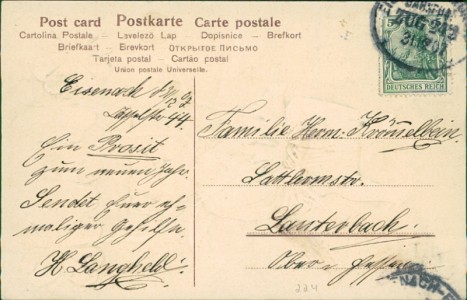 Post card Postkarte Carte postale
Cartolina Postale – Levelező Lap – Dopisnice – Brefkort
Briefkaart – Brevkort – ОТКРЫТОЕ ПИСЬМО
Tarjeta postal – Cartão postal
Union postale Universelle.
ZUG 242
5
DEUTSCHES REICH
Eisenach
44.
Ein Prosit
zum neuen Jahr.
Sendet Euer eh-
maliger Gehilfe
H. Langheld.
Familie Herm.
Lauterbach
Ober Hessen
224